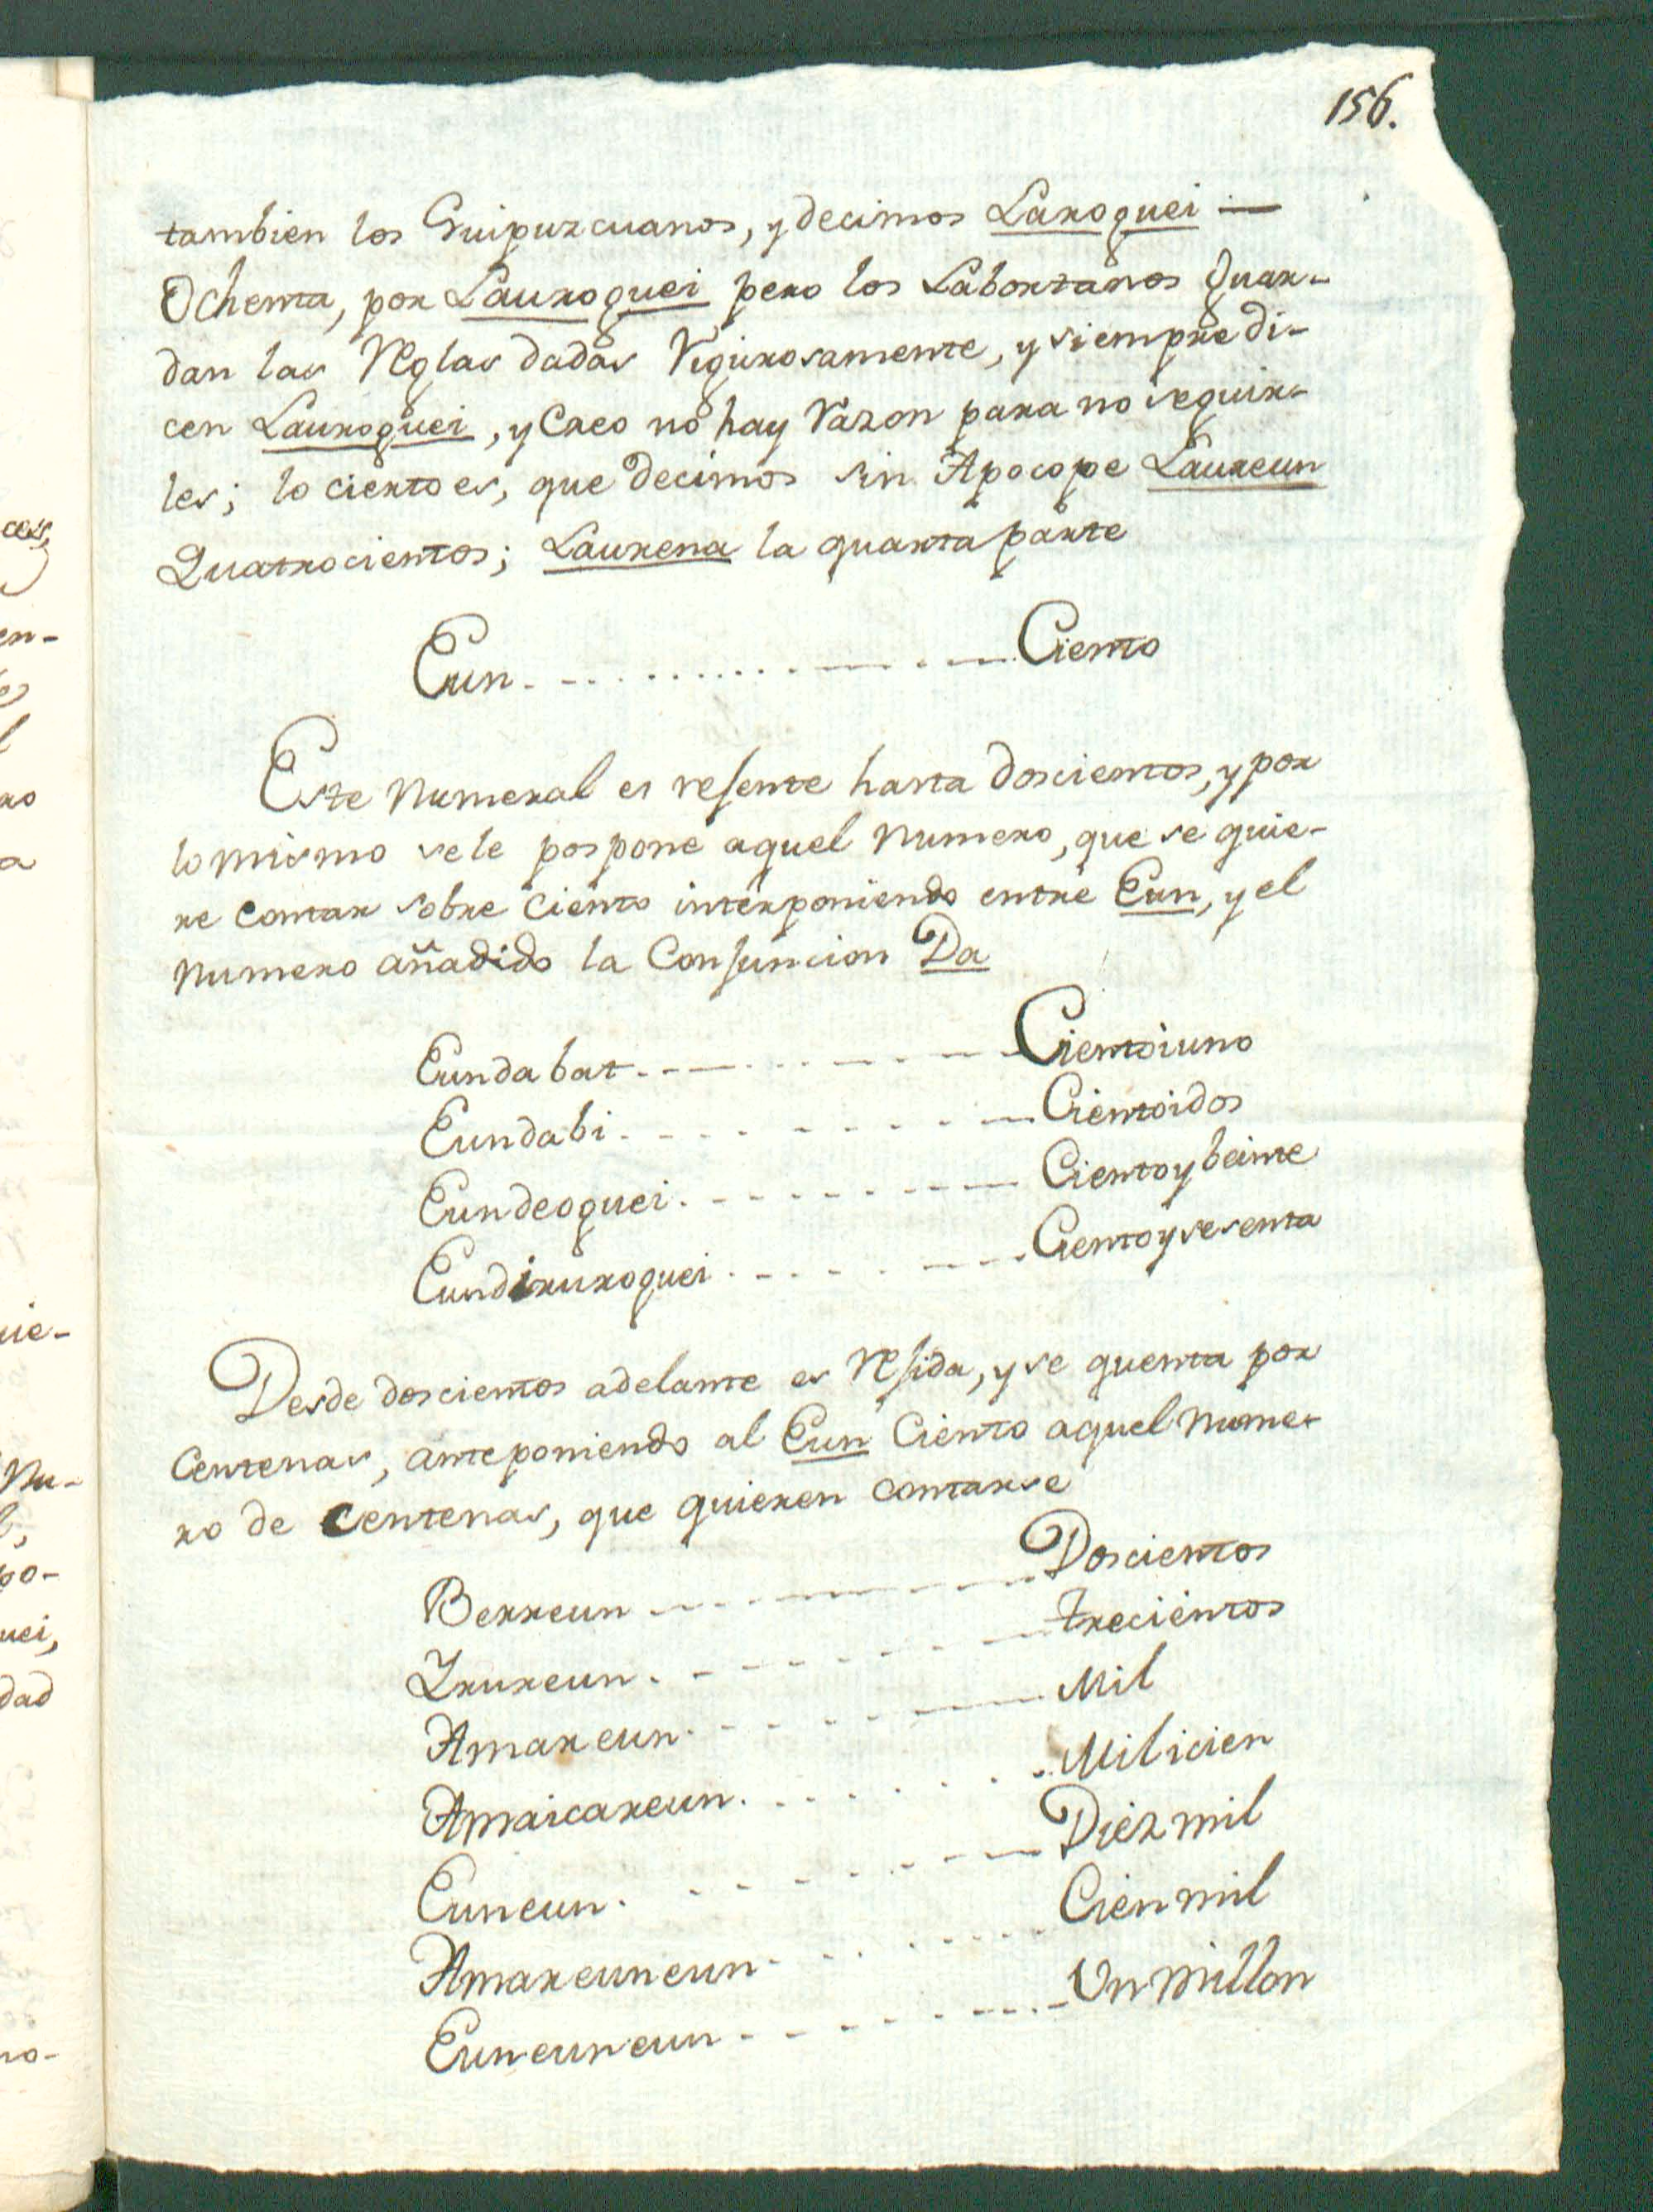 156.
tambien los Guipuzcuanos, y decimos Laroguei —
Ochenta, por Lauroguei pero los Labortanos guar-
dan las Reglas dadas Rigurosamente, y siempre di-
cen Lauroguei, y Creo no hay Razon para no seguir-
les; lo cierto es, que decimos sin Apocope Laureun
Quatrocientos; Laurena la quarta parte
Eun. - - . . . . . . . . . - - . - - Ciento
Este Numeral es rejente hasta doscientos, y por
lo mismo se le pospone aquel Numero, que se quie-
re contar sobre Ciento interponiendo entre Eun, y el
Numero añadido la Conjuncion Da
Eunda bat. - - - . . . - - - - Cientoiuno
Eundabi. - - - - - - - - Cientoidos
Eundeoguei. - - - - - - - - Ciento y beinte
Eundiruroguei. - - - - - - - Ciento y sesenta
Desde doscientos adelante es Rejida, y se quenta por
Centenas, anteponiendo al Eun Ciento aquel Nume-
ro de Centenas, que quieren contarse
Berreun - - - - - - - - - Doscientos
Irureun. - - - - - - - - trecientos
Amar eun. - - - - - - - Mil
Amaicareun. . . . . . . . Mil icien
Euneun. - - - - - - - Diez mil
Amareuneun. - . . . . . . . Cien mil
Euneuneun - - - - - - - - Un millon
ces,
en-
l
ro
a
uie-
Nu-
l,
po-
uei,
dad
no-